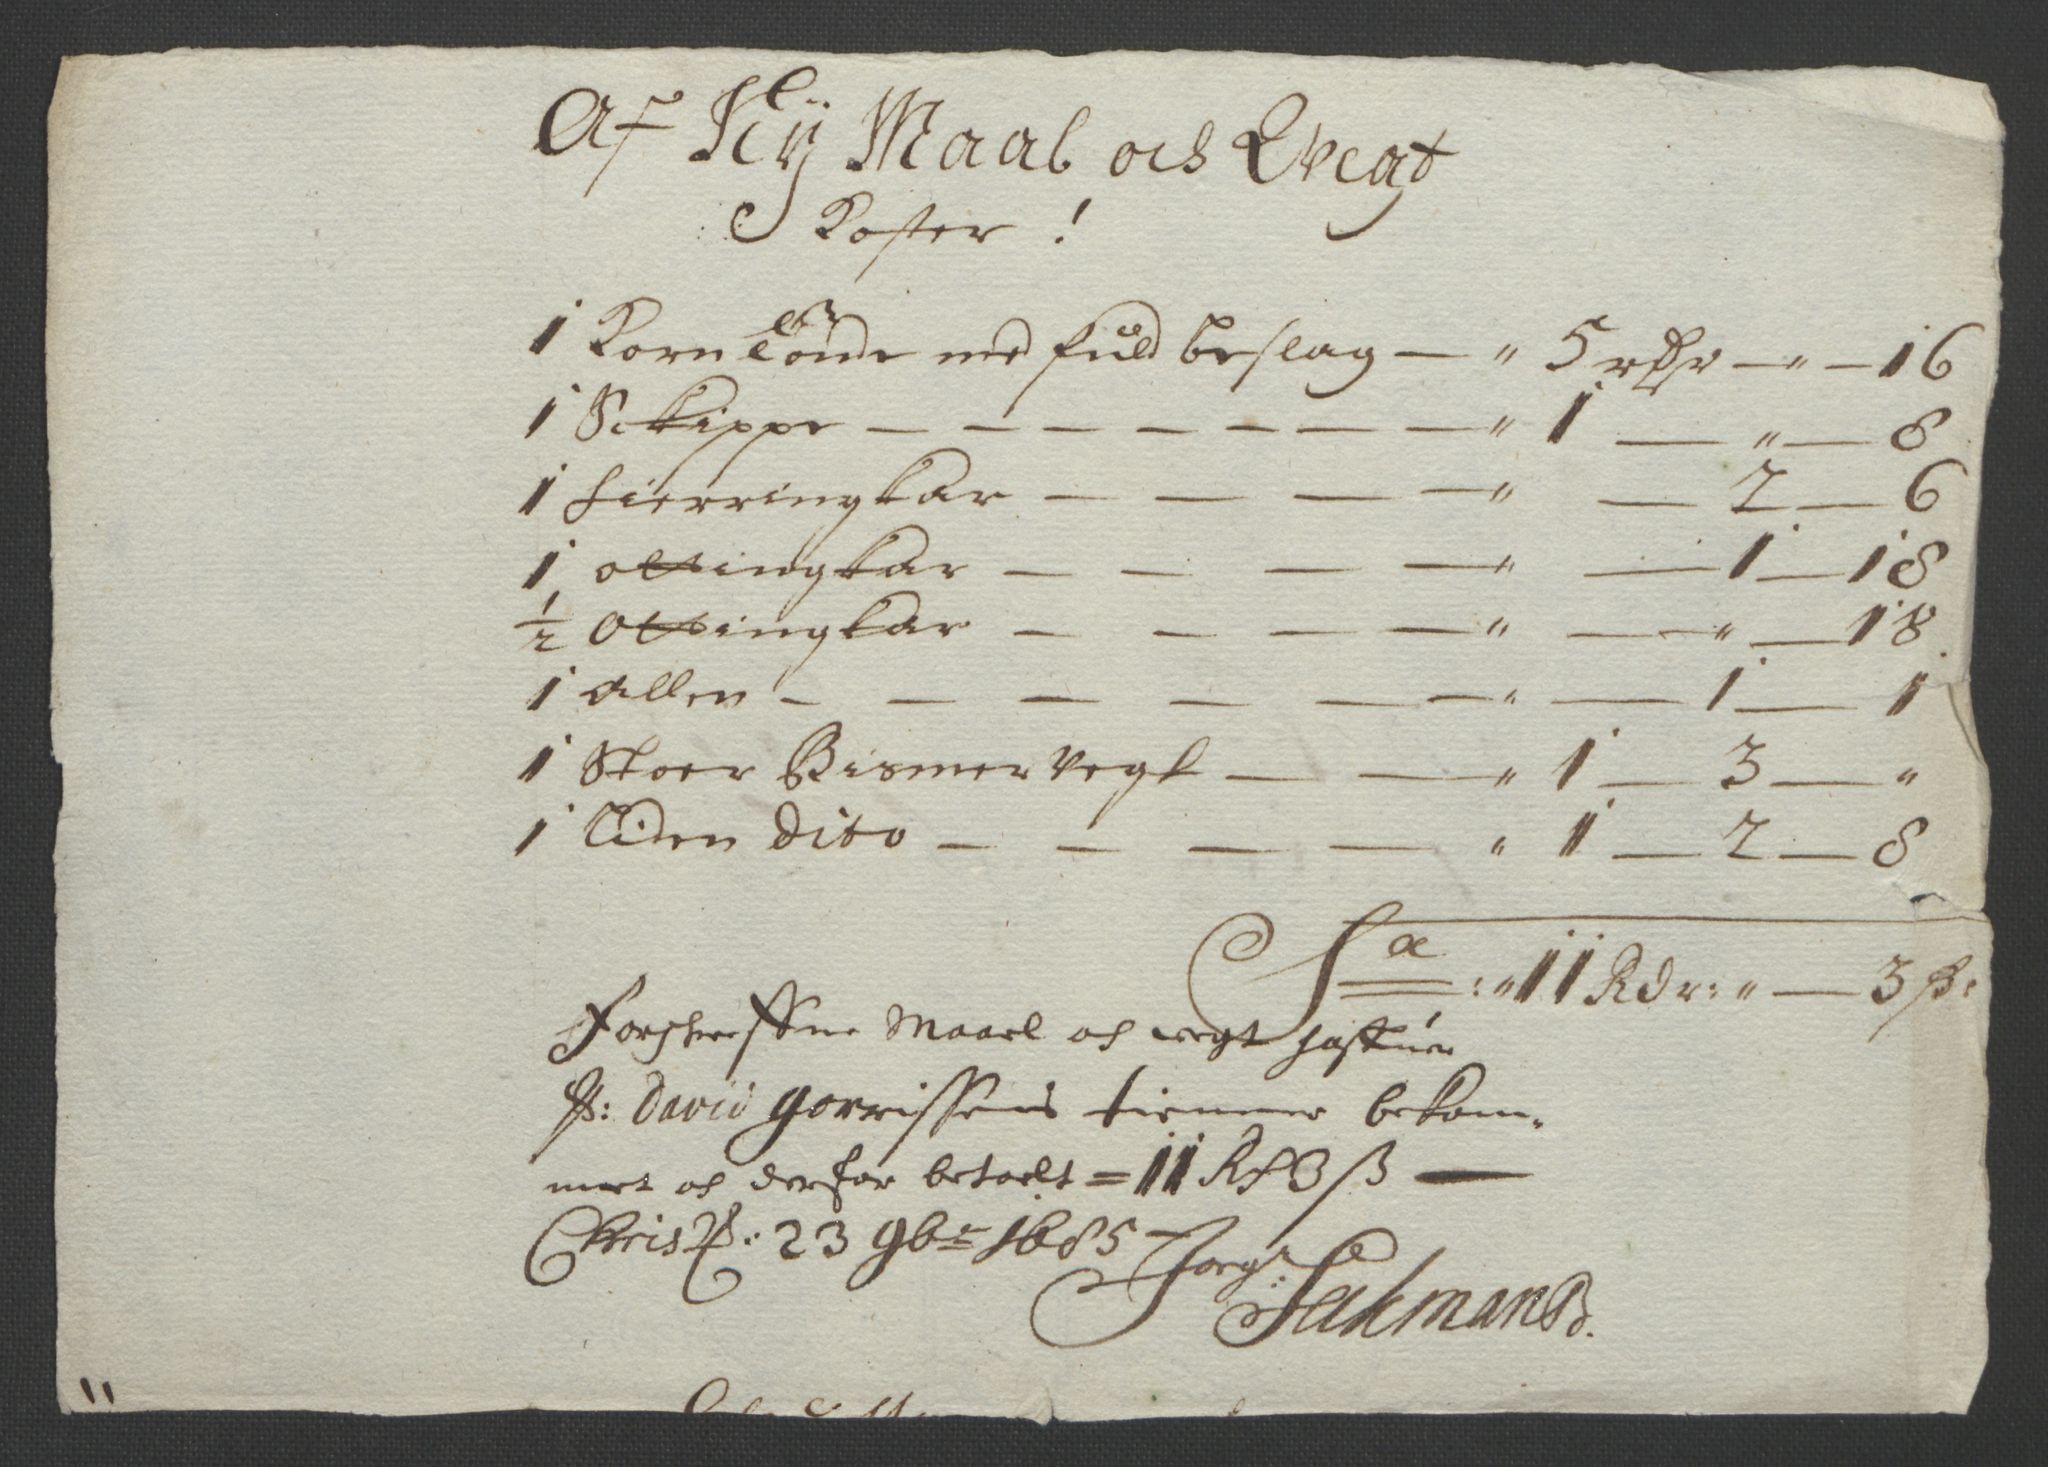 Af Nÿ Maal och Vegt
Koster !
1 Korn Tönde med fuld beslag — " 5 rdr — " — 16
1 Schippe — — — — — — — " 1 — " — 8
1 fierringkar — — — — " — 2 — 6
1 ottingkar — — — — " — 1 — 18
½ Ottingkar — — — — " — " — 18
1 Allen — — — — — — " — 1 — 1
1 Stoer Bismer vegt — — " 1 — 3 — "
1 Liden dito — — — — " 1 — 2 — 8
Sa : " 11 Rdr: " — 3 ß:
Forschrefne Maael och vegt
Sr: David Gorrissens tienner bekom-
met och derfor betaelt = 11 Rd 3 ß —
Christ: 23 9br 1685
Jörg:
"